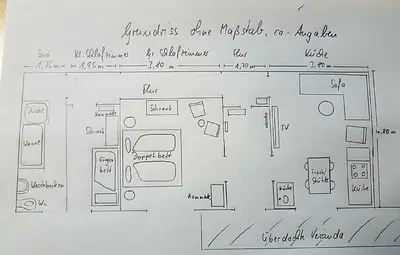 Grundriss ohne Maßstab, ca-Angaben
Bad Kl. Schlafzimmer Gr. Schlafzimmer Flur Küche
1,75m 1,95m 3,80m 1,70m 3,80m
Flur
Sofa
Kommode
Schrank
Dusche
Schrank
TV
4,20m
Wanne
Doppelbett
Etagen
bett
Tisch/
Stühle
Waschbecken
Kommode
Küche
Küche
WC
überdachte Veranda